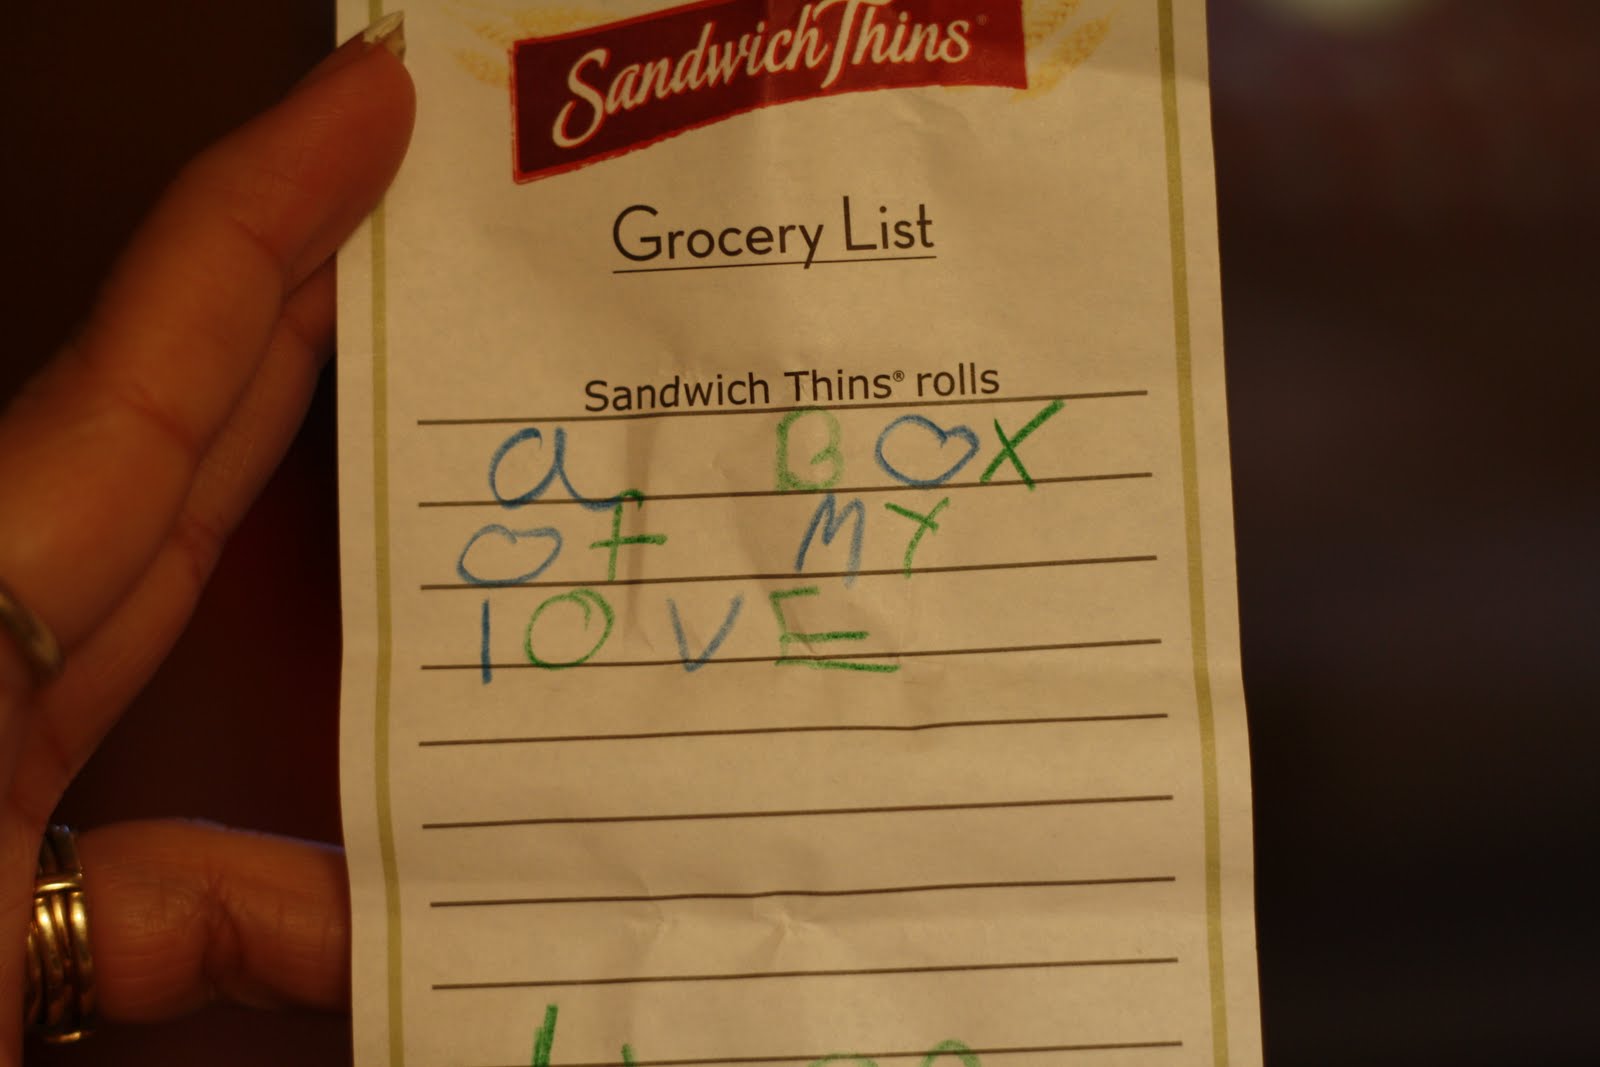 Sandwich Thins®
Grocery List
Sandwich Thins® rolls
a BOX
OF MY
lOVE